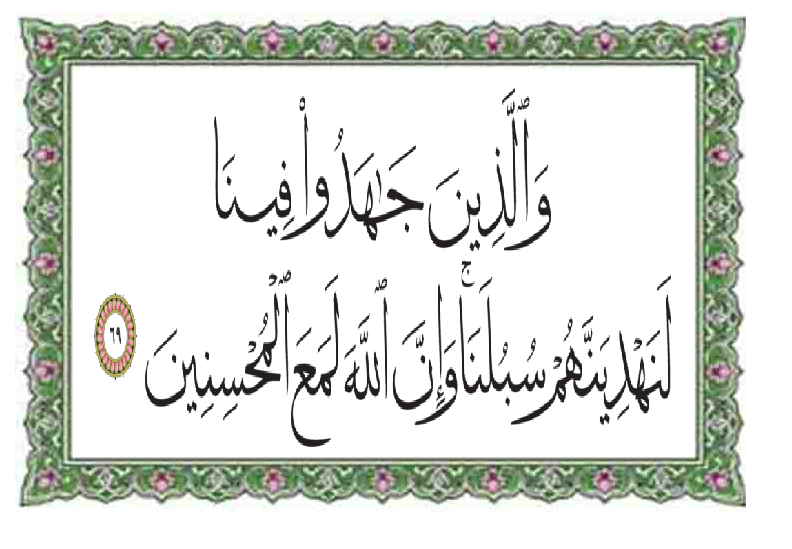 وَٱلَّذِينَ جَٰهَدُوا۟ فِينَا
لَنَهْدِيَنَّهُمْ سُبُلَنَا ۚ وَإِنَّ ٱللَّهَ لَمَعَ ٱلْمُحْسِنِينَ ٦٩